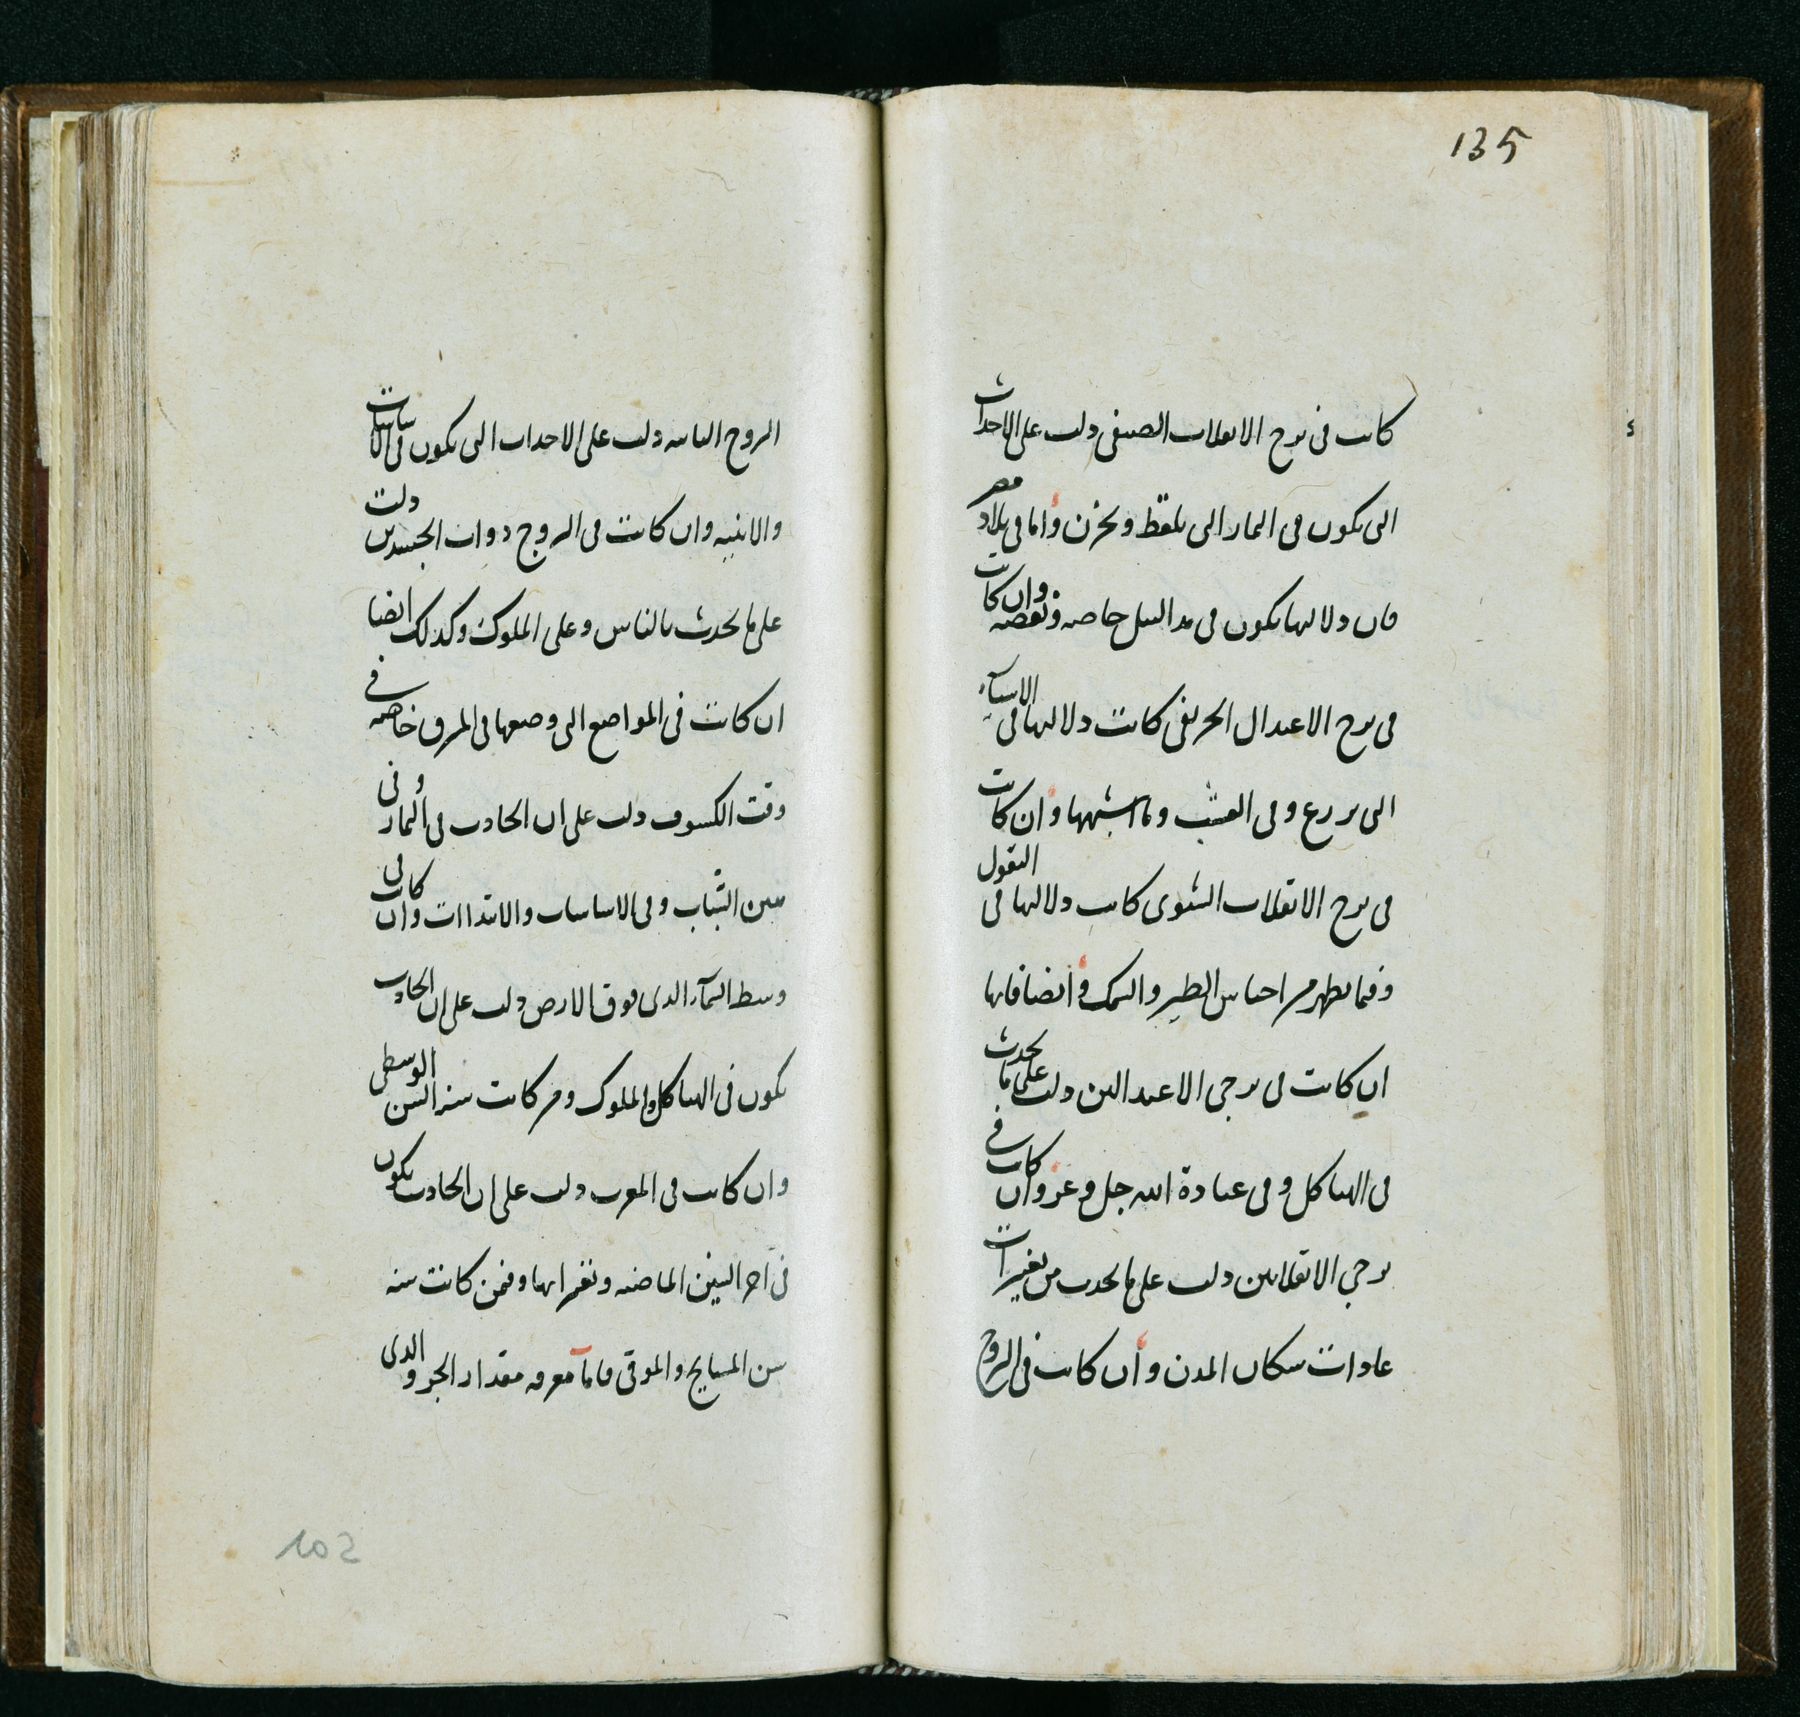 135
كانت فى برج الانقلاب الصيفى دلت على الاحداث
التى تكون فى الثمار التى تلقط وتخزن واما فى بلاد مصر
فان دلالتها تكون فى مد النيل خاصة ونقصه وان كانت
فى برج الاعتدال الخريفى كانت دلالتها فى الاشياء
التى تزرع وفى العشب وما اشبهها وان كانت
فى برج الانقلاب الشتوى كانت دلالتها فى البقول
وفيما يظهر من اجناس الطير والسمك وايضا فانها
ان كانت فى برجى الاعتدالين دلت على ما يحدث
فى الهياكل وفى عبادة الله جل وعز وان كانت فى
برجى الانقلابين دلت على ما يحدث من تغييرات
عادات سكان المدن وان كانت فى البروج
البروج الثابتة دلت على الاحداث التى تكون فى الاساسات
والابنيه وان كانت فى البروج ذوات الجسدين دلت
على ما يحدث بالناس وعلى الملوك وكذلك ايضا
ان كانت فى المواضع التى وضعها فى المشرق خاصة فى
وقت الكسوف دلت على ان الحادث فى الثمار وفى
سن الشباب وفى الاساسات والابتداات وان كانت فى
وسط السمآء الذى فوق الارض دلت على ان الحادث
يكون فى الهياكل والملوك ومن كانت سنه السن الوسطى
وان كانت فى المغرب دلت على ان الحادث يكون
فى اخر السنين الماضية وتغيراتها وفمن كانت سنه
سن المشايخ والموتى فاما معرفه مقدار الجزو الذى
102